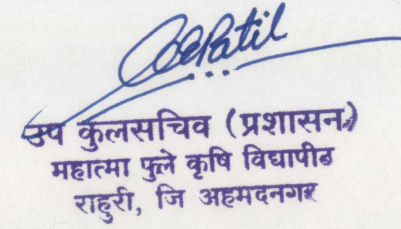 Patil
उप कुलसचिव (प्रशासन)
महात्मा फुले कृषि विद्यापीठ
राहुरी, जि अहमदनगर